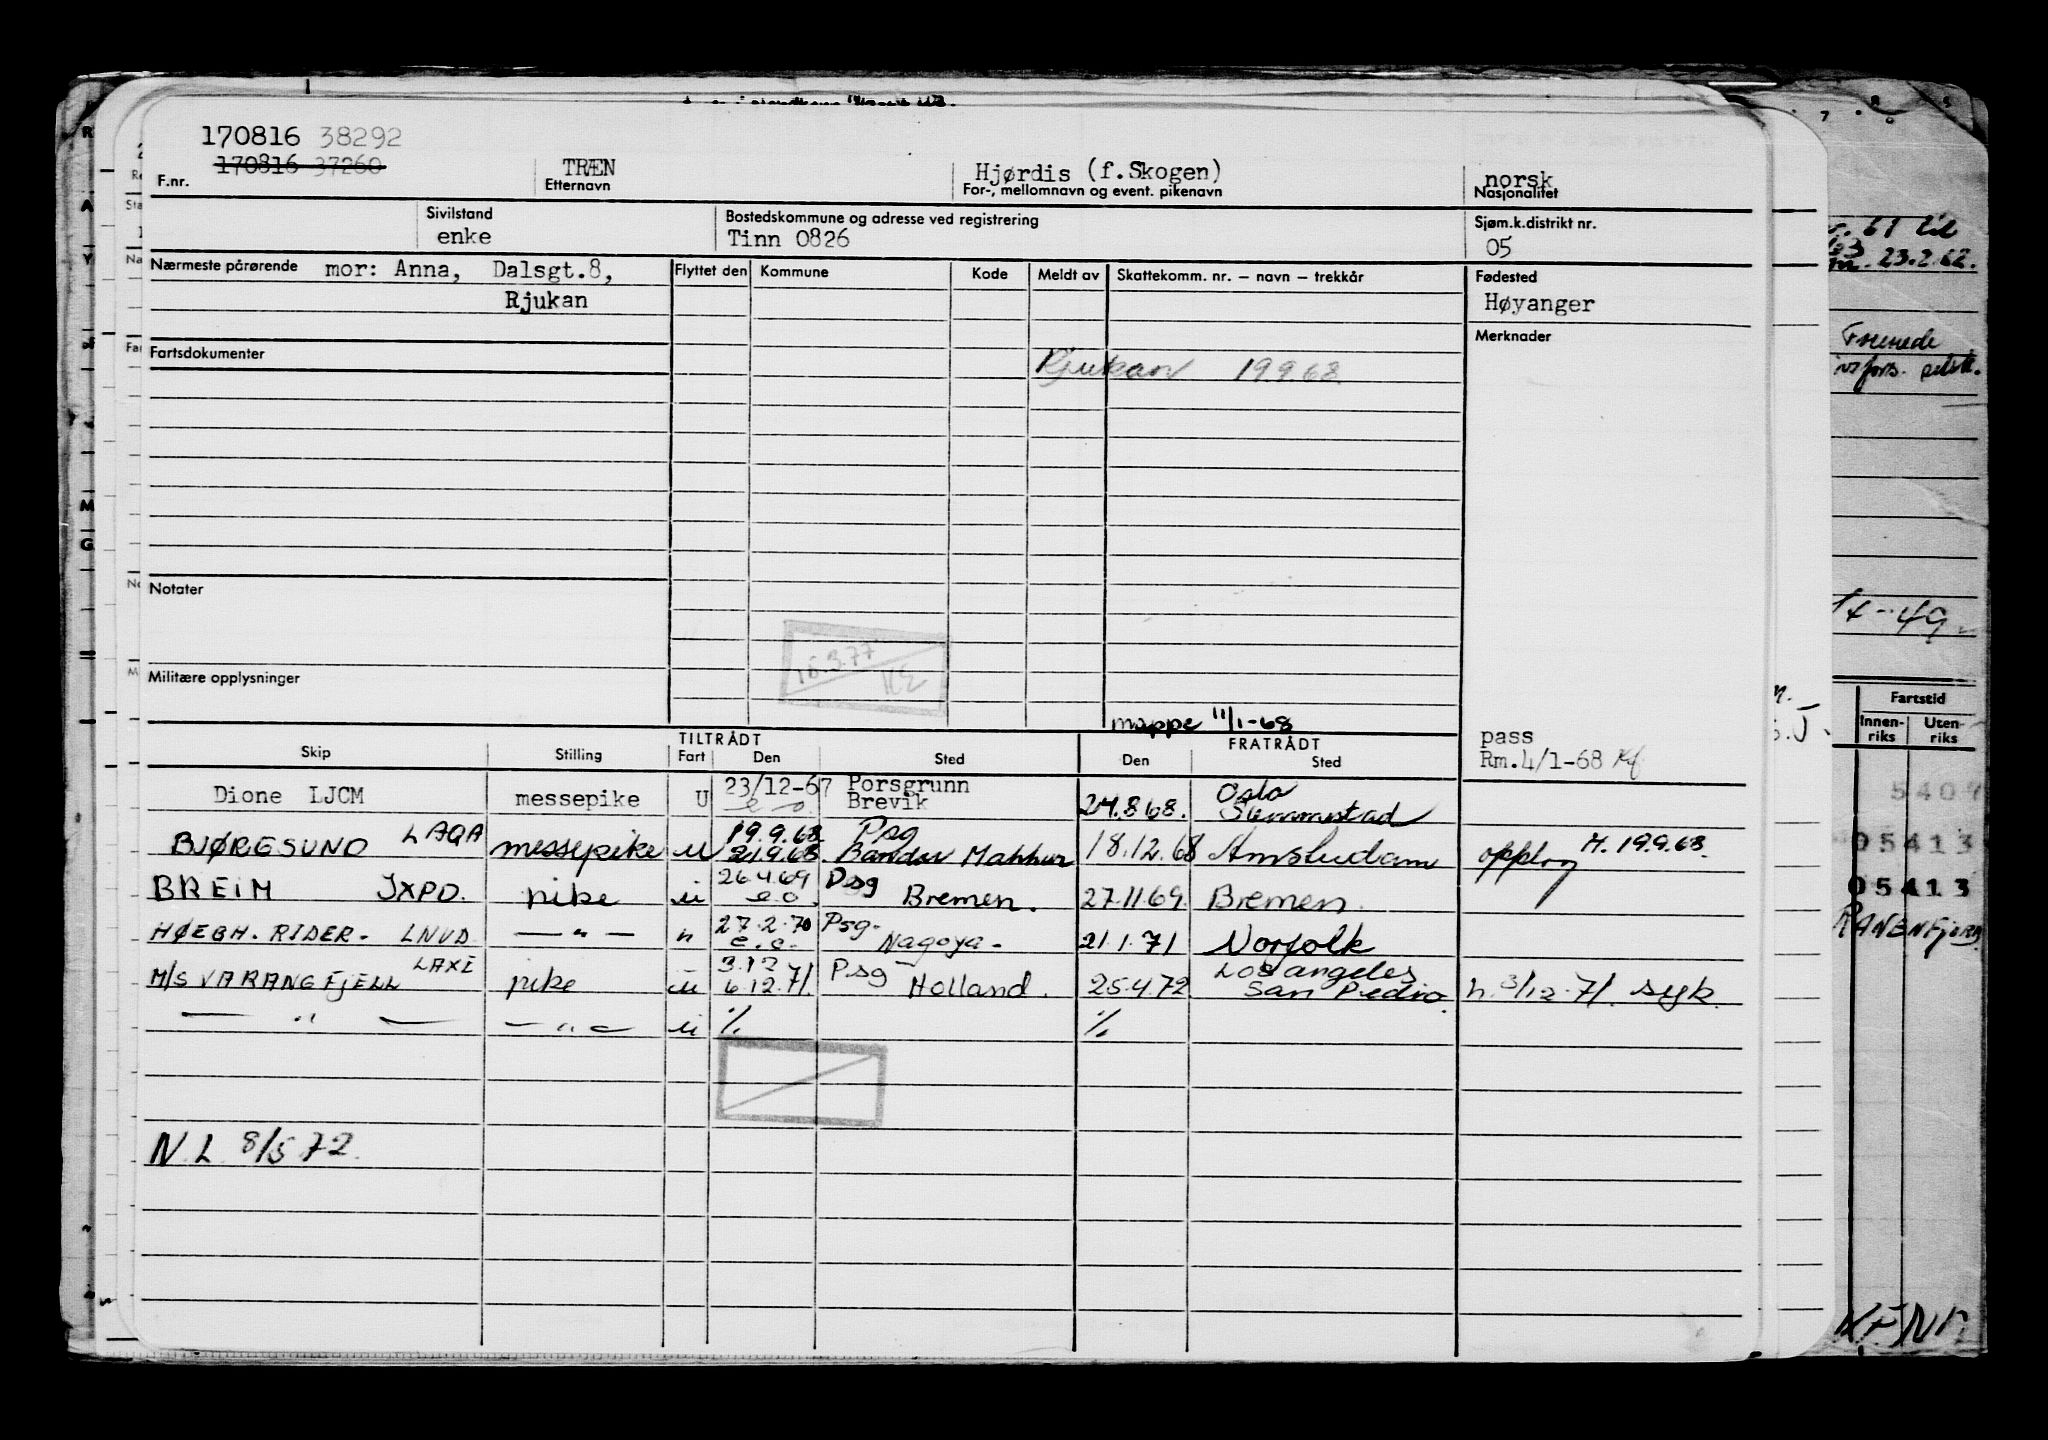 170816 38292
170816 37260
F.nr.
TRÆN
Etternavn
Hjørdis (f.Skogen)
For-, mellomnavn og event. pikenavn
norsk
Nasjonalitet
Sivilstand
enke
Bostedskommune og adresse ved registrering
Tinn 0826
Sjøm.k.distrikt nr.
05
Nærmeste pårørende mor: Anna, Dalsgt.8,
Rjukan
Flyttet den Kommune Kode Meldt av Skattekomm. nr. – navn – trekkår
Fødested
Høyanger
Merknader
Fartsdokumenter
Rjukan 19.9.68
Notater
16.3.77
Militære opplysninger
mappe 11/1-68
Skip Stilling TILTRÅDT Fart Den Sted FRATRÅDT Den Sted
pass
Rm.4/1-68
Dione LJCM messepike U 23/12-67 Porsgrunn
e o Brevik 24.8.68. Oslo Slemmestad
BJØRGSUND LAQA messepike u 19.9.68 Psg
21.9.68 Bandar Mahhur 18.12.68 Amsterdam opplog M. 19.9.68.
BREIM JXPD. pike u 26.4.69 Psg
e.o. Bremen. 27.11.69. Bremen.
HØEGH. RIDER. LNVD — " — u 27.2.70 Psg.
e.o. Nagoya - 21.1.71 Norfolk
M/S VARANGFJELL LAXE pike u 3.12 Psg
6.12.71. Holland. 25.4.72. Los angeles San Pedro h. 3/12.71. syk.
— " — — " — u % %
N.L. 8/5 72.
61 til
23.2.62.
pelstk.
49.
Fartstid
Innen-
riks
Uten-
riks
5404
05413
05413
RANENFJORD